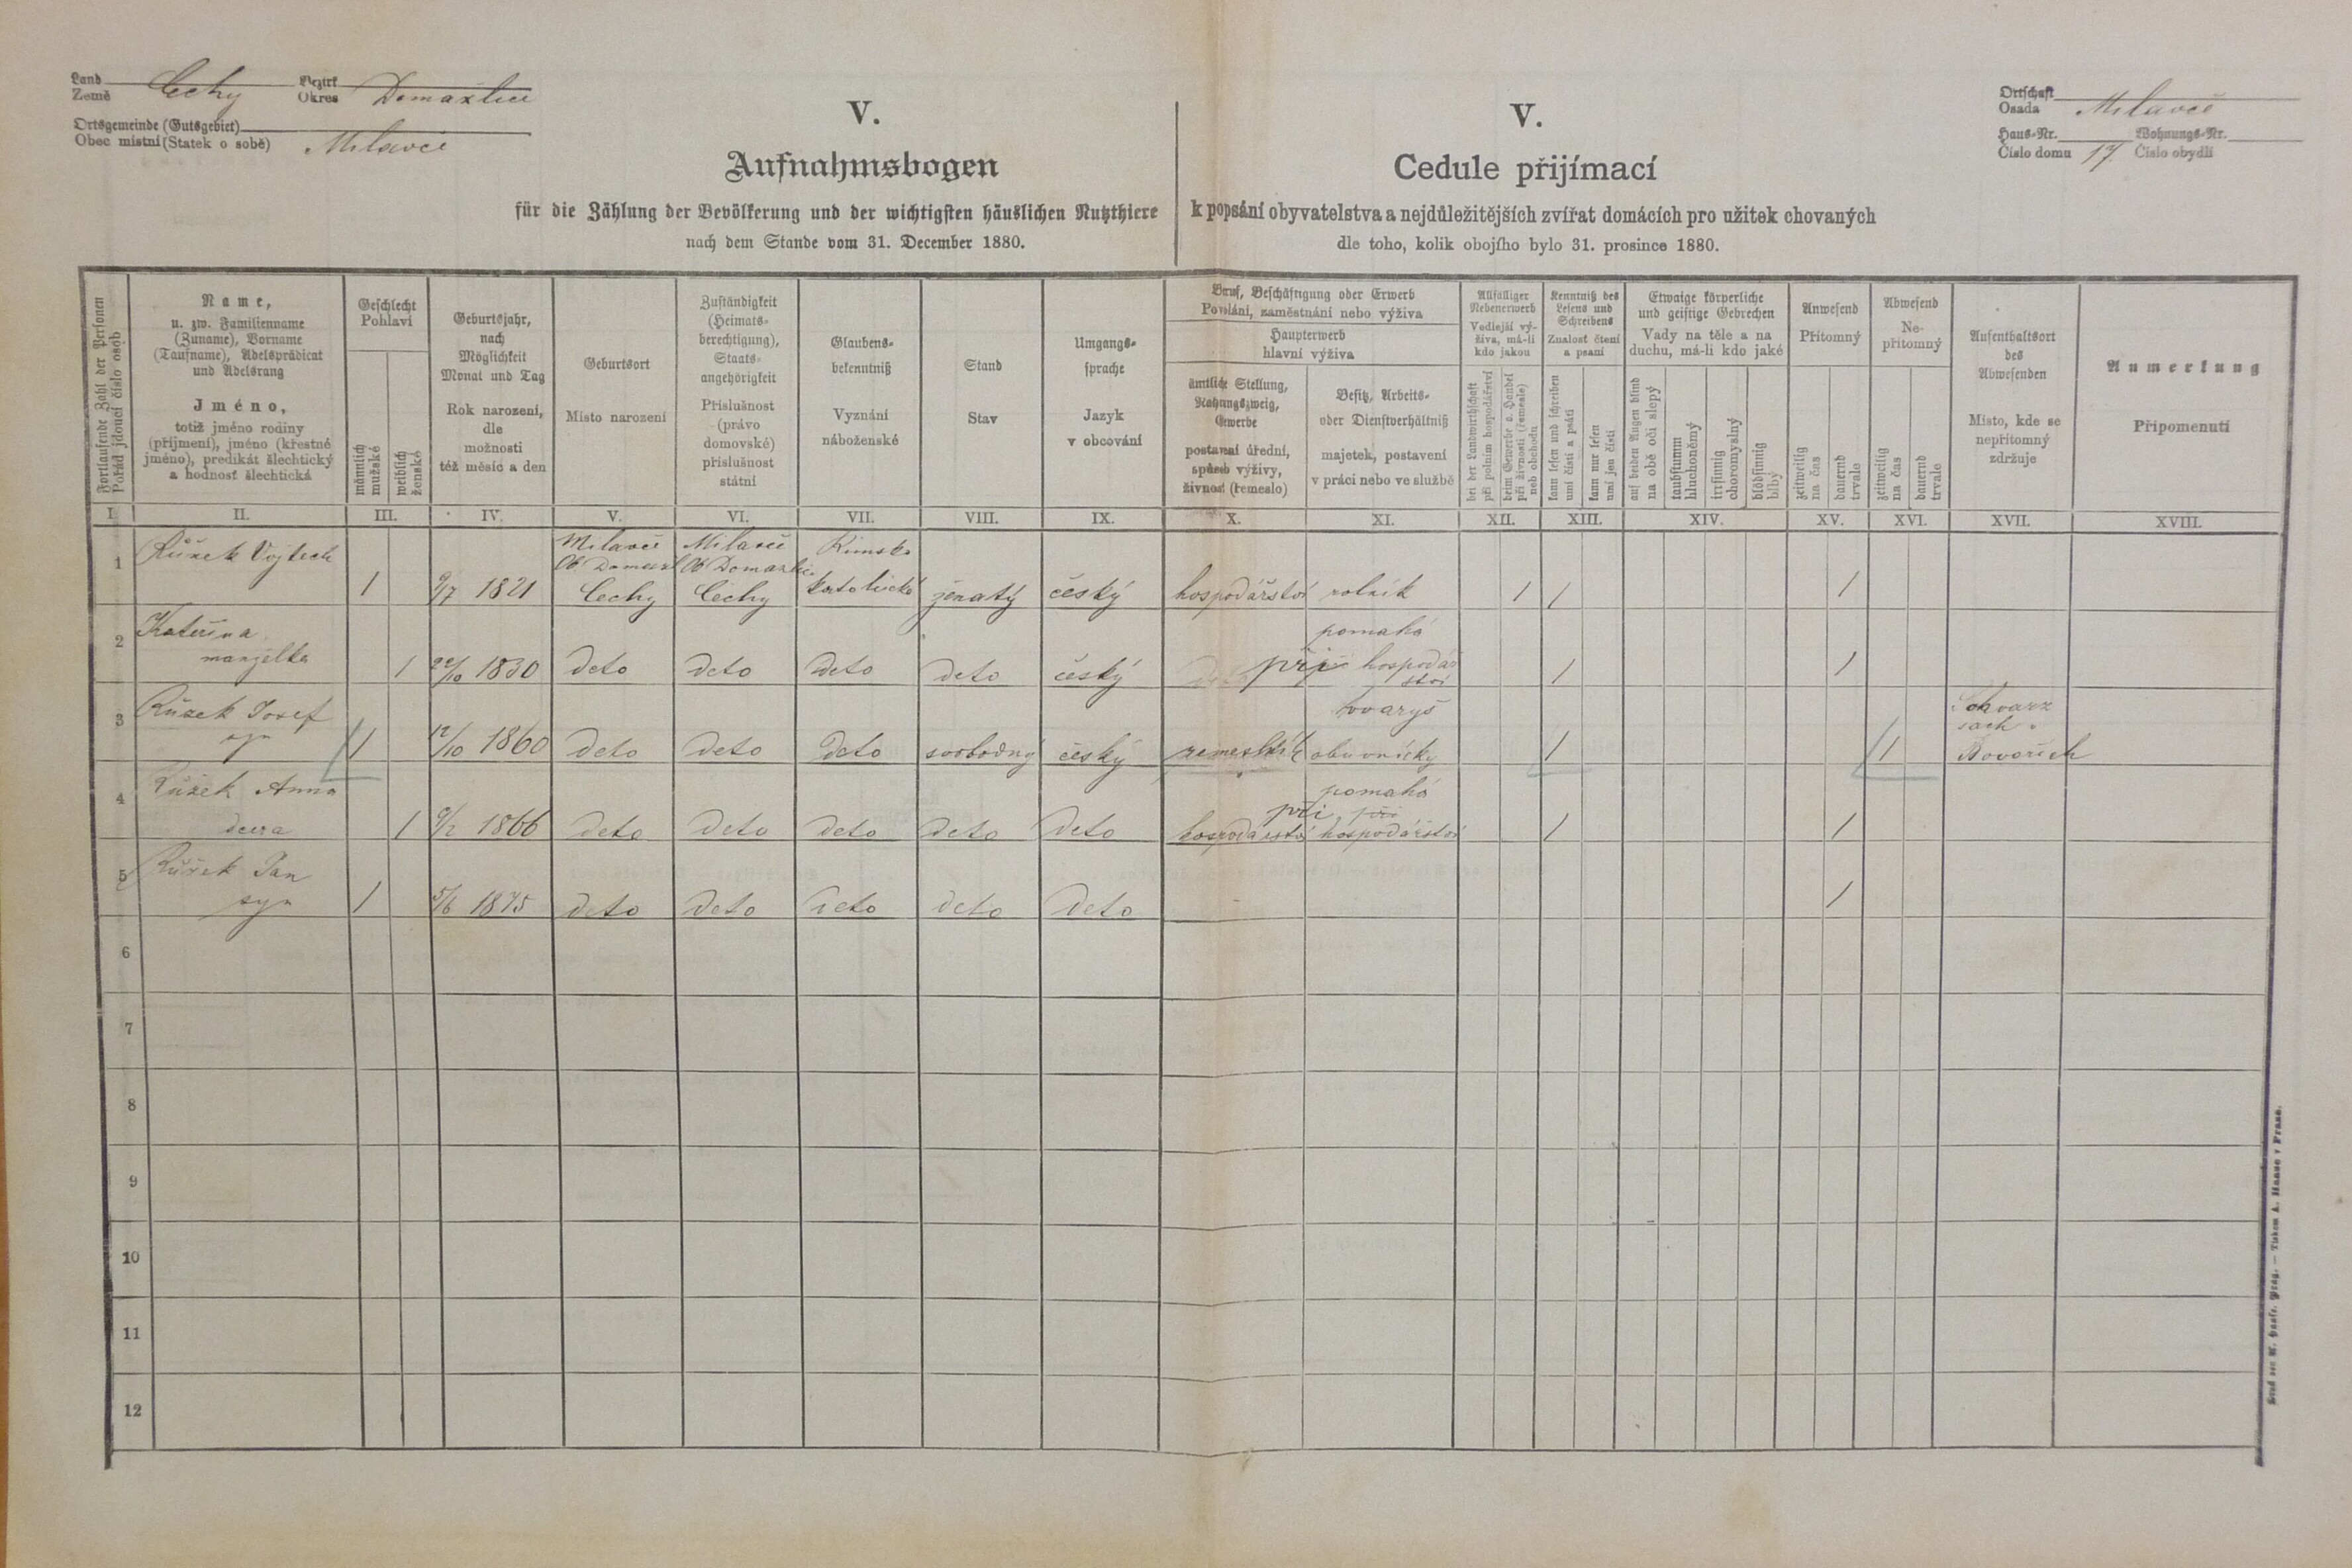 Land
Země Čechy
Bezirk
Okres Domažlice
Ortsgemeinde (Gutsgebiet)
Obec místní (Statek o sobě) Milavče
V.
Aufnahmsbogen
für die Zählung der Bevölkerung und der wichtigsten häuslichen Nutzthiere
nach dem Stande vom 31. December 1880.
V.
Cedule přijímací
k popsání obyvatelstva a nejdůležitějších zvířat domácích pro užitek chovaných
dle toho, kolik obojího bylo 31. prosince 1880.
Ortschaft
Osada Milavče
Haus-Nr. Wohnungs-Nr.
Číslo domu 17. Číslo obydlí
Fortlaufende Zahl der Personen
Pořád jdoucí číslo osob
Name,
u. zw. Familienname
(Zuname), Vorname
(Taufname), Adelsprädicat
und Adelsrang
Jméno,
totiž jméno rodiny
(příjmení), jméno (křestné
jméno), predikát šlechtický
a hodnosť šlechtická
Geschlecht
Pohlaví
männlich
mužské
weiblich
ženské
Geburtsjahr,
nach
Möglichkeit
Monat und Tag
Rok narození,
dle
možnosti
též měsíc a den
Geburtsort
Místo narození
Zuständigkeit
(Heimats-
berechtigung),
Staats-
angehörigkeit
Příslušnost
(právo
domovské)
příslušnost
státní
Glaubens-
bekenntniß
Vyznání
náboženské
Stand
Stav
Umgangs-
sprache
Jazyk
v obcování
Beruf, Beschäftigung oder Erwerb
Povolání, zaměstnání nebo výživa
Haupterwerb
hlavní výživa
ämtliche Stellung,
Nahrungszweig,
Gewerbe
postavení úřední,
způsob výživy,
živnost (řemeslo)
Besitz, Arbeits-
oder Dienstverhältniß
majetek, postavení
v práci nebo ve službě
Allfälliger
Nebenerwerb
Vedlejší vý-
živa, má-li
kdo jakou
bei der Landwirthschaft
při polním hospodářství
beim Gewerbe o. Handel
při živnosti (řemesle)
neb obchodu
Kenntniß des
Lesens und
Schreibens
Znalost čtení
a psaní
kann lesen und schreiben
umí čísti a psáti
kann nur lesen
umí jen čísti
Etwaige körperliche
und geistige Gebrechen
Vady na těle a na
duchu, má-li kdo jaké
auf beiden Augen blind
na obě oči slepý
taubstumm
hluchoněmý
irrsinnig
choromyslný
blödsinnig
blbý
Anwesend
Přítomný
zeitweilig
na čas
dauernd
trvale
Abwesend
Ne-
přítomný
zeitweilig
na čas
dauernd
trvale
Aufenthaltsort
des
Abwesenden
Místo, kde se
nepřítomný
zdržuje
Anmerkung
Připomenutí
I. II. III. IV. V. VI. VII. VIII. IX. X. XI. XII. XIII. XIV. XV. XVI. XVII. XVIII.
Milavče Milavče Římsko
1 Růžek Vojtěch Ok Domažl Ok Domažlice
1 9/7 1821 Čechy Čechy katolické ženatý český hospodářství rolník 1 1 1
2 Kateřina pomahá
manželka 1 22/10 1830 deto deto deto deto český při hospodář 1 1
ství
3 Růžek Josef tovaryš Schwarz
syn sach
1 12/10 1860 deto deto deto svobodný český řemeslník obuvnický 1 1 Bavořích
4 Růžek Anna pomahá
při při
dcera 1 9/2 1866 deto deto deto deto deto hospodářství hospodářství 1 1
5 Růžek Jan
syn 1 5/6 1875 deto deto deto deto deto 1
6
7
8
9
10
11
12